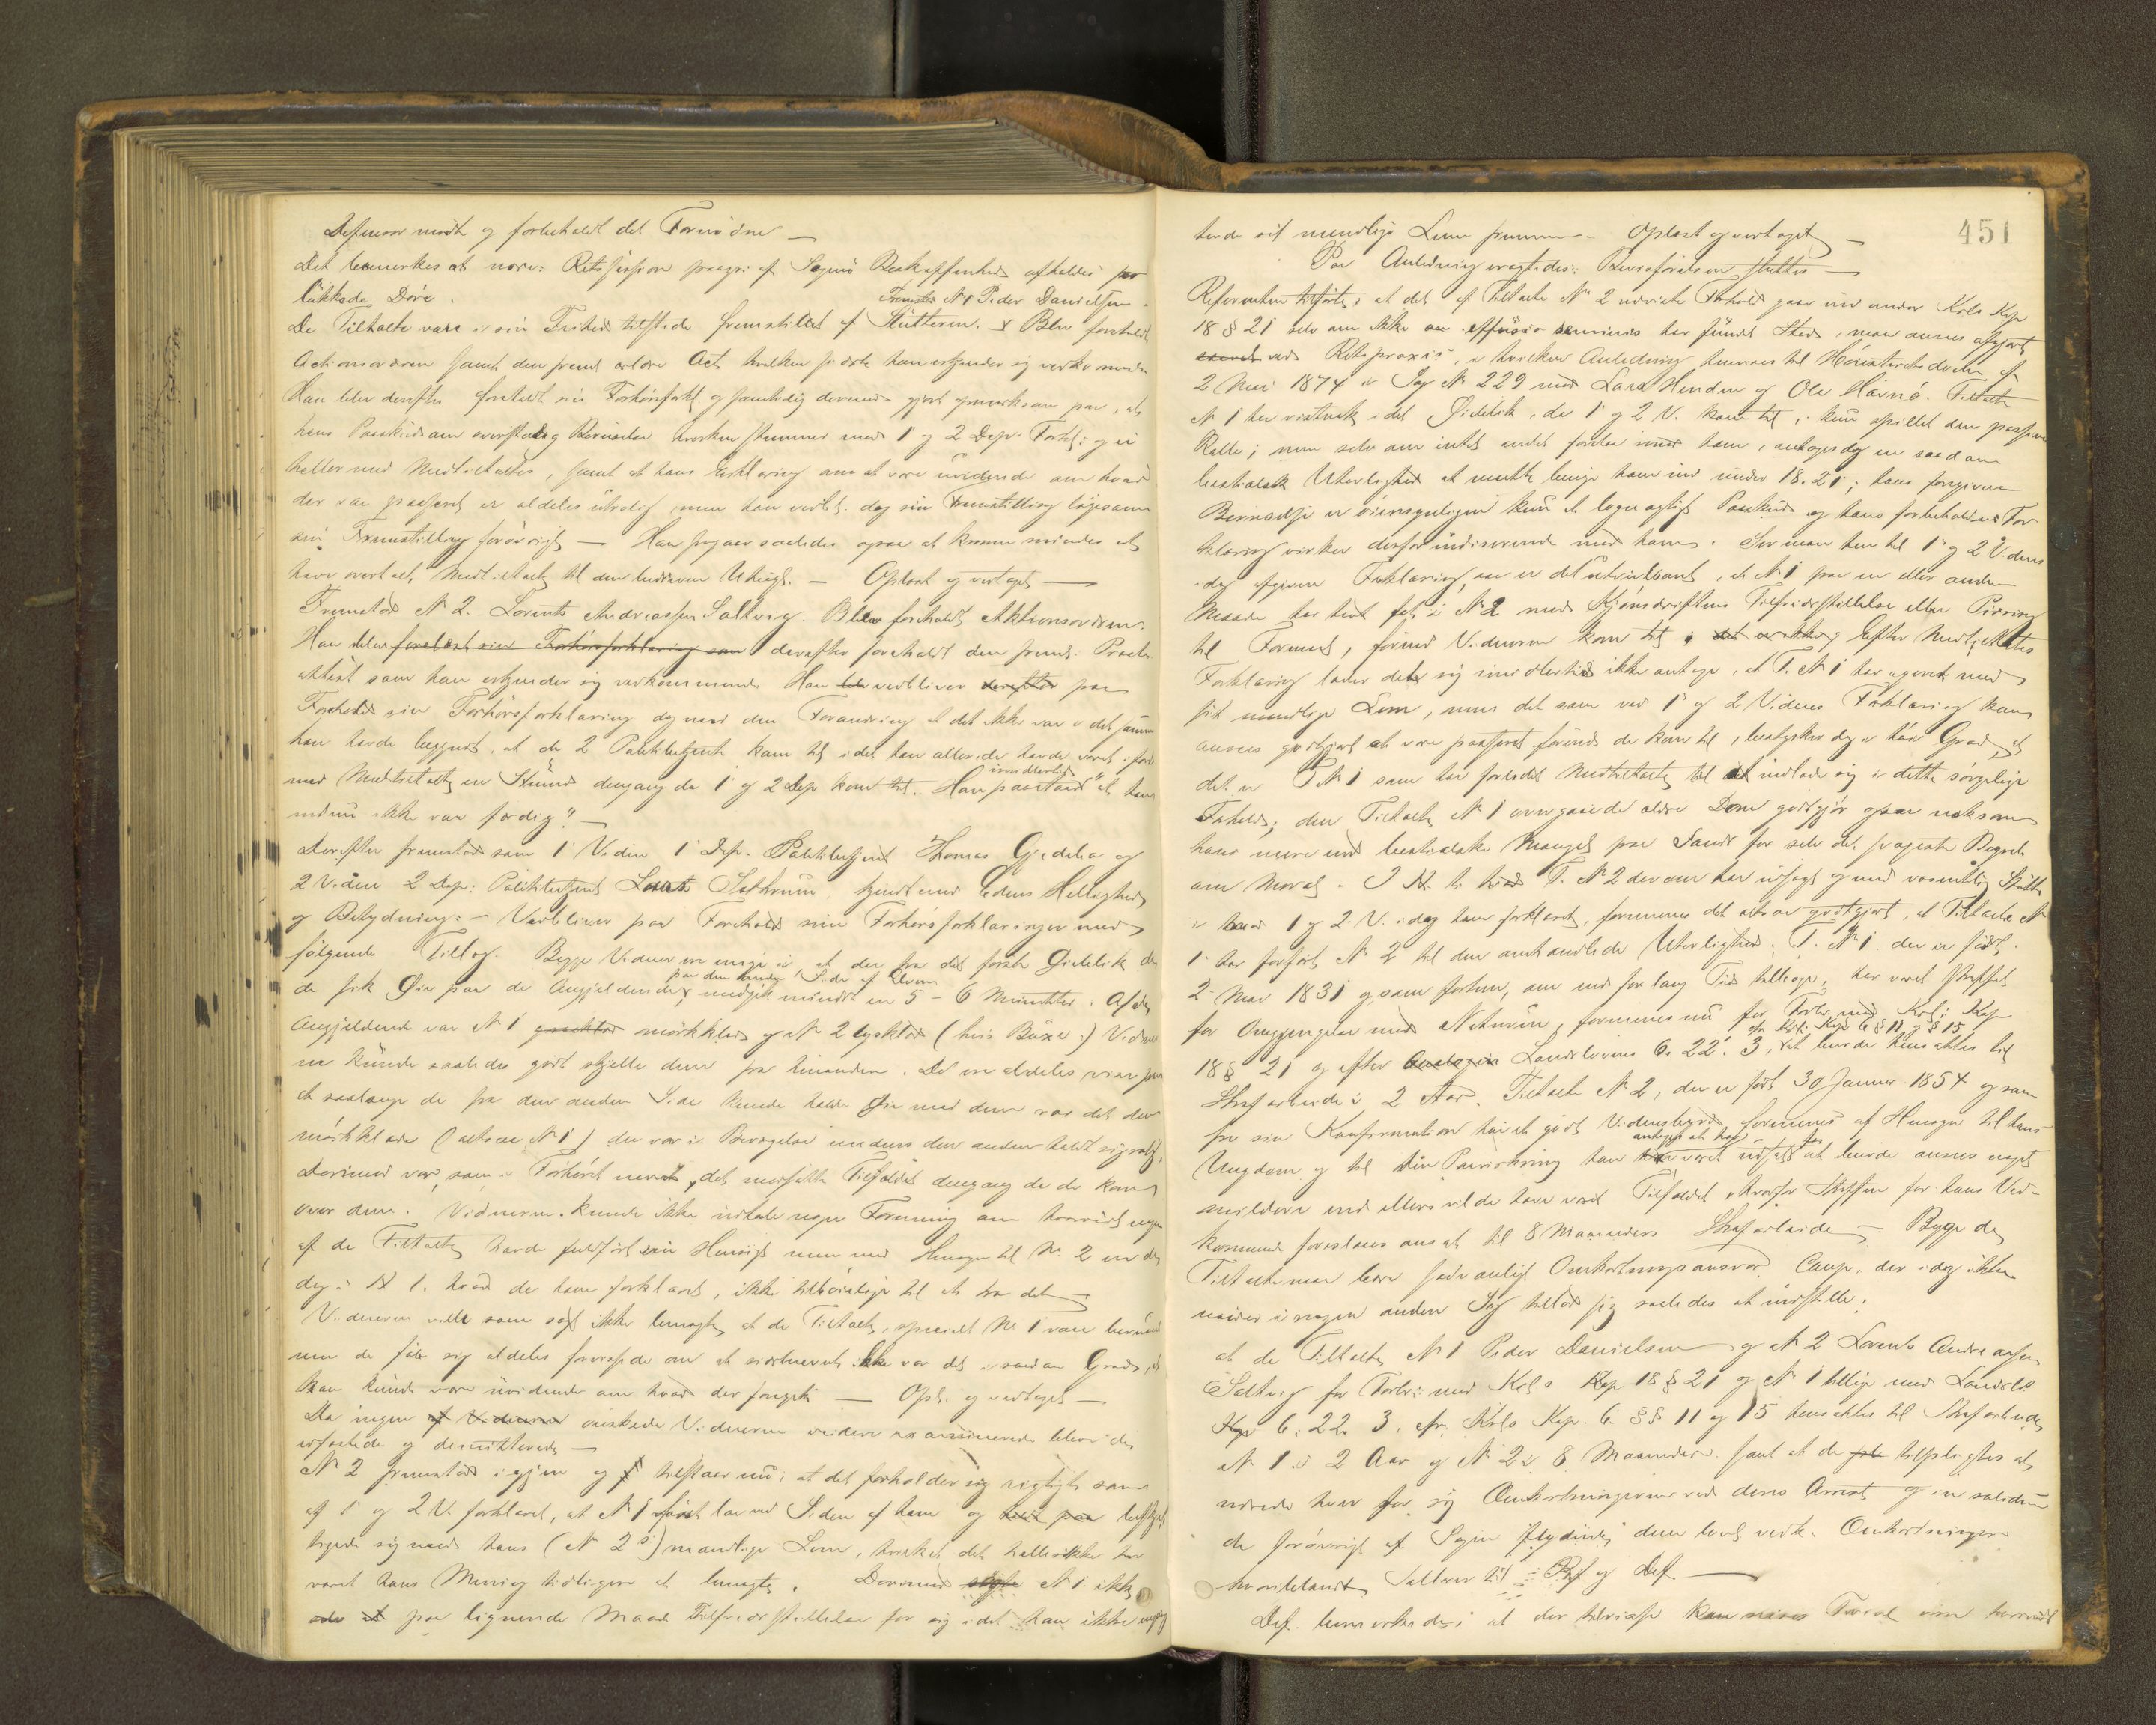 Defensor mødte og forbeholdt det Fornødne —
Det bemerkes at nærv: Retssession paagr: af Sagens Beskaffenhed afholdes for
lükkede Døre.
Fremstod N 1 Peder Danielsen.
De Tiltalte vare i sin Frihed tilstede fremstillet af Slutteren. Blev foreholdt
Actionsordren samt den fremlagte ældre Act hvilken sidste han erkjender sig vedkommende
Han blev derefter foreholdt sin Forhørsforkl og samtidig dermed gjort opmærksom paa, at
hans Paaskud om overstadig Beruselse hverken stemmer med 1 og 2 Dep. Forkl: og ei
heller med Medtiltaltes, samt at hans Erklæring om at være uvidende om hvad
der var passeret er aldeles utrolig men han vedbl. dog sin Fremstilling ligesom
sin Fremstilling forøvrigt — Han saaledes ogsaa at kunne mindes at
have overtalt Medtiltalte til den bedrevne Utugt. — Oplæst og vedtaget —
Fremstod N 2. Lorents Andreassen Saltvig. Blev foreholdt Aktionsordren.
Han blev forelæst sin Forhørsforklaring som derefter foreholdt den fremlagte Præste
attest som han erkjender sig vedkommende Han vedbliver derefter paa
Forehold sin Forhørsforklaring dog med den Forandring at det ikke var i det samme
han havde begyndt, at de 2 Politibetjente kom til idet han allerede havde været i færd
med Medtiltalte en Stund dengang da 1 og 2 Dep kom til. Han imidlertid paastaar "at han
endnu ikke var færdig". —
Derefter fremstod som 1 Vidne 1 Dep. Politibetjent Thomas Gjedebo og
2 Vidne 2 Dep: Politibetjent Lars Sæthrum, kjendt med Edens Hellighed
og Betydning: — Vedbliver paa Forehold sine Forhørsforklaringer med
følgende Tillæg. Begge Vidner ere enige i at der fra det første Øieblik da
de fik Øie paa de Angjeldende paa den anden Side af Elven medgik mindst en 5 – 6 Minutter. Af de
Angjeldende var N 1 mørkklæd og N 2 lysklæd (hvis Buxer) Vidner
ne kunde saaledes godt skjelle dem fra hinanden. De ere aldeles visse paa
at saalænge de fra den anden Side kunde holde Øie med dem var det den
mørkklædte (altsaa N 1) der var i Bevægelse medens den anden holdt sig rolig,
Derimod var, som i Forhøret nævnt, det modsatte Tilfældet dengang de kom
over dem. Vidnerne kunde ikke udtale nogen Formening om hvorvidt nogen
af de Tiltalte havde fuldført sin Hensigt men med Hensyn til N. 2 er de
dog i H t. hvad de have forklaret, ikke tilbøielige til at tro det —
Vidnerne ville som sagt ikke benægte at de Tiltalte, specielt No 1 vare beruset
men de føle sig aldeles forvissede om at sidstnævnte ikke var det i saadan Grad, at
han kunde være uvidende om hvad der foregik — Opl. og vedtaget —
Da ingen af Vidnerne ønskede Vidnerne videre examinerede bleve de
afskedede og dimitterede —
N 2 fremstod igjen og tilstaar nu: at det forholder sig rigtigt som
af 1 og 2 V. forklaret, at N 1 først laa ved Siden af ham og
ligede sig med hans (N 2s) mandlige Lem, hvilket det heller ikke har
været hans Mening tidligere at benægte. Derimod N 1 ikke
paa lignende Maade Tilfredsstillelse for sig idet han ikke
451
havde sit mandlige Lem fremme. — Oplæst og vedtaget —
Paa Anledning vragtedes: Bevisførelsen sluttes —
Referenten tilførte: at det af Tiltalte N 2 udviste Forhold gaar ind under Krls Kap
18 § 21 selv om ikke effusio seminis har fundet Sted, maa ansees afgjort
ved Retspraxis, i hvilken Anledning henvises til Høiesteretsdommen af
2 Mai 1874 i Sag N 229 mod Lars Henden og Ole Havnø. Tiltalte
N 1 har vistnok i det Øieblik, da 1 og 2 V. kom til, kun spillet den passive
Rolle; men selv om intet andet forelaa imod ham, antages dog en saadan
bestialsk Uterlighed at maatte bringe ham ind under 18. 21; hans foregivne
Beruselse er øiensynligen kun et løgnagtigt Paaskud og hans forbeholdne For
klaring virker desforuden indicerende mod ham. Ser man hen til 1 og 2 Vidners
idag afgivne Forklaring, saa er det utvivlsomt, at N 1 paa en eller anden
Maade har havt fat i N 2 med Kjønsdriftens Tilfredsstillelse eller Pirring
til Formaal, forind Vidnerne kom til. Efter Medtiltaltes
Forklaring lader det sig imidlertid ikke antage, at T. N 1 har ageret med
sit mandlige Lem, men det som ved 1 og 2 Vidnes Forklaring kan
ansees godtgjort at være passeret førend de kom til, bestyrker dog i høi Grad, at
det er T N 1 som har forledet Medtiltalte til at indlade sig i dette sørgelige
Forhold; den Tiltalte N 1 overgaaede ældre Dom godtgjør ogsaa noksom
hans mere end bestialske Mangel paa Sands for selv det svageste Begreb
om Moral. I H. t. hvad T. N 2 derom har udsagt og med væsentlig Støtte
i hvad 1 og 2. V. idag have forklaret, formenes det altsaa godtgjort, at Tiltalte N
1 har forført N 2 til den omhandlede Uterlighed. T. N 1. der er født
2 Mar 1831 og som forhen, om end for lang Tid tilbage, har været straffet
for Omgjængelse mod Naturen, formenes nu for Forbr. mod Krl: Kap
18 § 21 og efter Landslovens 6. 22. 3, cfr Krl: Kap 6 §§ 11 og 15 at burde hensættes til
Strafarbeide i 2 Aar. Tiltalte N 2, der er født 30 Januar 1854 og som
fra sin Konfirmation har et godt Vidnesbyrd formenes af Hensyn til hans
Ungdom og til den Paavirkning han antages at have været udsat for at burde ansees noget
mildere end ellers vilde have været Tilfældet, hvorfor Straffen for hans Ved-
kommende foreslaaes ansat til 8 Maaneders Strafarbeide — Begge de
Tiltalte maa bære sædvanligt Omkostningsansvar. Comp. der idag ikke
møder i nogen anden Sag tillod sig saaledes at indstille:
at de Tiltalte N 1 Peder Danielsen og N 2 Lorents Andreassen
Saltvig for Forbr: mod Krls Kap 18 § 21 og N 1 tillige med Landsl's
6. 22. 3. cfr: Krls Kap. 6. §§ 11 og 15 hensættes til Strafarbeide
N 1. i 2 Aar og N 2 i 8 Maaneder. samt at de tilpligtes at
udrede hver for sig Omkostningerne ved deres Arrest og in solidum
de forøvrigt af Sagen flydende dem begge vedk. Omkostninger
hvoriblandt Sallær til Ref og Def —
Def. bemærkede: at der tilvisse kan reises Tvivl om hvorvidt